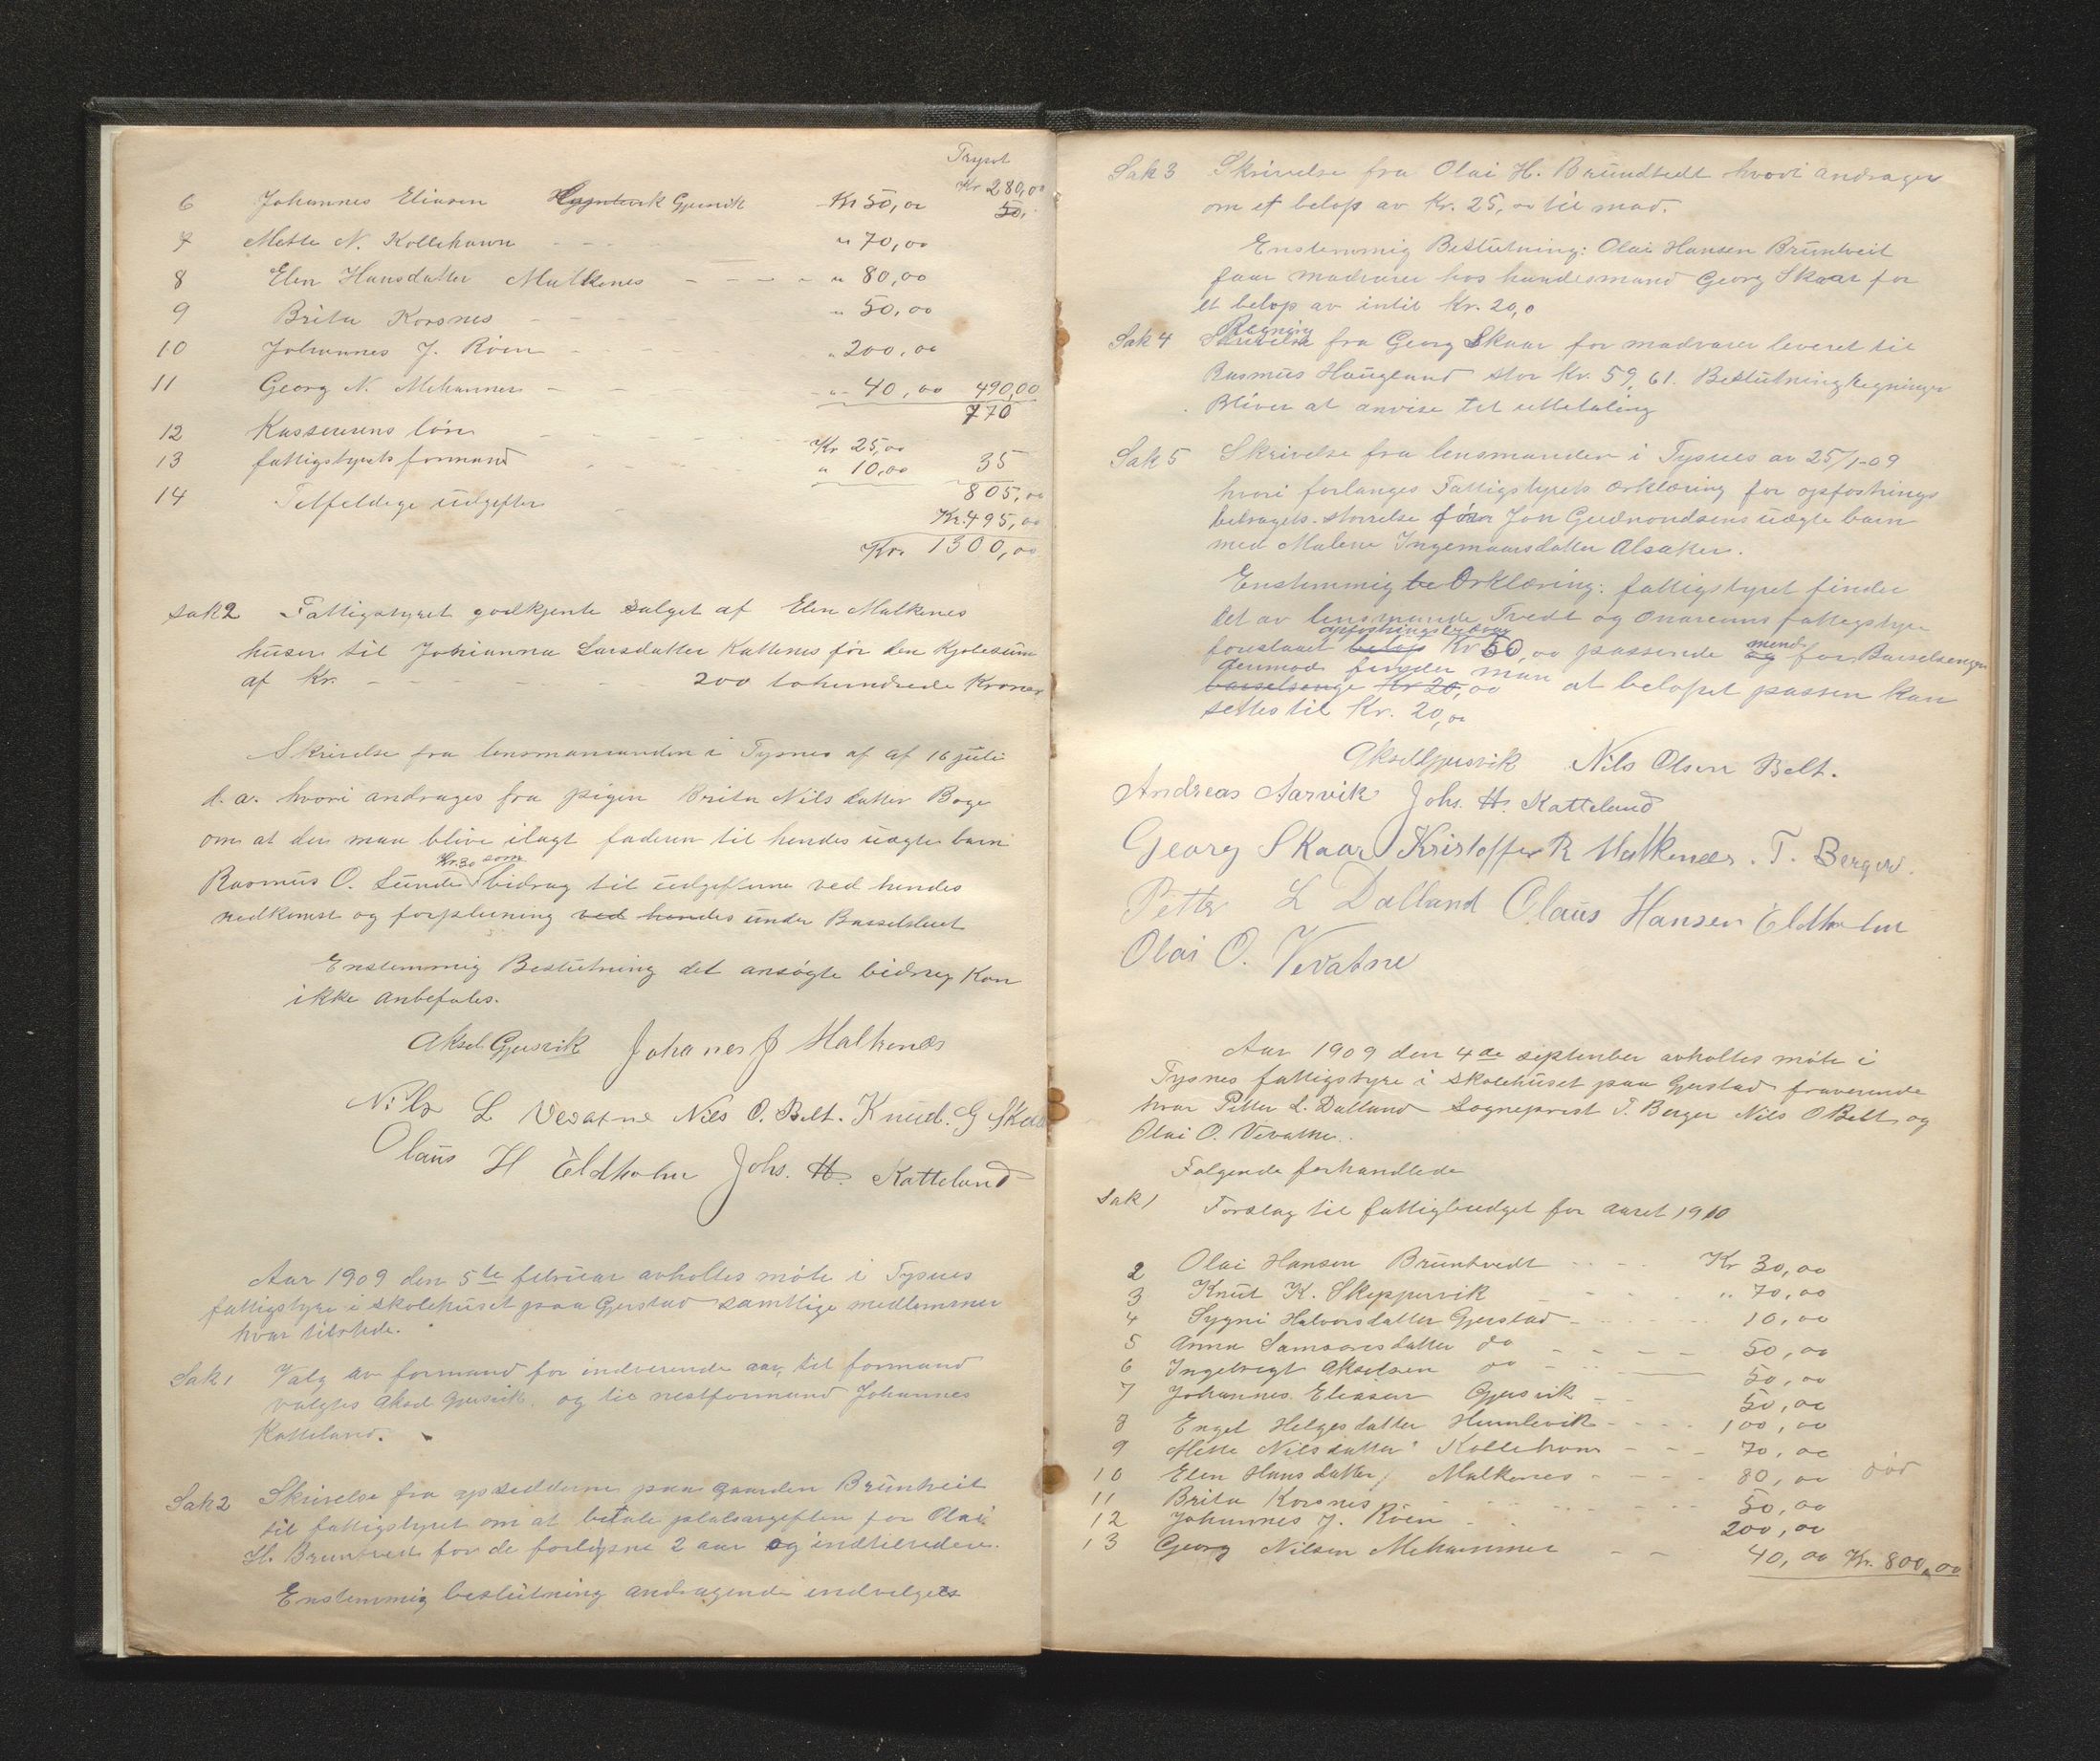 Kr 280,00
6 Johannes Eliasen Gjersvik Kr 50,00 50,
7 Mette N. Kollehavn - - - " 70,00
8 Elen Hansdatter Malkenes - - - - " 80,00
9 Brita Korsnes - - - " 50,00
10 Johannes J. Røen - - - " 200,00
11 Georg N. Mehammer - - " 40,00 490,00
770
12 Kasserens løn - - - - Kr 25,00
13 fattigstyrets formand - - - " 10,00 35
805,00
14 Telfeldige udgifter - Kr. 495,00
Kr. 1300,00
sak 2 Fattigstyret godkjente salget af Elen Malkenes
huser til Johanna Larsdatter Kattenes for den Kjøbesum
af Kr. - - - - - - 200 tohundrede Kroner
Skrivelse fra lensmanden i Tysnes af af 16 juli
d. a. hvori andrages fra pigen Brita Nilsdatter Boge
om at der maa blive ilagt faderen til hendes uægte barn
Kr. 30 som
Rasmus O. Sunde bidrag til udgifterne ved hendes
nedkomst og forpleining ved hendes under Basselsleiet
Enstemmig Beslutning det ansøgte bidrag Kan
ikke anbefales.
Aksel Gjersvik Johanes J Malkenes
Nils L Vevatne Nils O. Belt. Knud. G Skaar
Olaus H Eldholm Johs. H. Katteland
Aar 1909 den 5te februar avholtes møte i Tysnes
fattigstyre i skolehuset paa Gjerstad samtlige medlemmer
hvar tilstede.
Sak 1 Valg av formand for indeverende aar, til formand
valgtes Aksel Gjersvik og til nestformand Johannes
Katteland.
Sak 2 Skrivelse fra opsidderne paa gaarden Brüntveit
til fattigstyret om at betale platsavgiften for Olai
H. Bruntveit for de forløpne 2 aar og indtilvidere.
Enstemmig beslutning andragende indvelges
Sak 3 Skrivelse fra Olai H. Brundtedt hvori andrager
om et beløp av Kr. 25,00 til mad.
Enstemmig Beslutning: Olai Hansen Brüntveit
faar madvarer hos handesmand Georg Skaar for
et beløp av intil Kr. 20,0
Regning
Sak 4 Skrivelse fra Georg Skaar for madvarer leveret til
Rasmus Haugland stor Kr. 59,61. Beslutning Regninger
Bliver at anvise til utbetaling
Sak 5 Skrivelse fra lensmanden i Tysnes av 25/1-09
hvori forlanges Fattigstyrets erklæring for opfostrings
bedragets størrelse for Jon Gudmondsens uægte barn
med Malene Ingemansdatter Alsaker.
Enstemmig be Erklæring: fattigstyret finder
det av lensmande Tvedt og fattegstyre
opfostringsbidrag
foreslaaet beløp Kr 50,00 passende og mend for Barselsengen
derimod finder man
barselsenge Kr 20,00 at beløpet passen kan
settes til Kr. 20,00
Aksel Gjersvik Nils Olsen Belt.
Andreas Aarvik Johs. H. Katteland
Georg Skaar Kristoffer R Malkenes. T. Berger.
Petter L Dalland Olaus Hansen Eldholm
Olai O. Vevatne
Aar 1909 den 4de september avholtes møte i
Tysnes fattigstyre i skolehuset paa Gjerstad fraverende
hvar Petter L. Dalland Sogneprest T. Berger Nils O Belt og
Olai O. Vevatne.
Følgende forhandlede
Sak 1 Forslag til fattigbudget for aaret 1910
2 Olai Hansen Brüntvedt - - - - Kr 30,00
3 Knut K. Skeppervik - - - " 70,00
4 Sygni Halvorsdatter Gjerstad - - - 10,00
5 Anna Samsonsdatter do - - - - 50,00
6 Ingebregt Akselsen do - - - 50,00
7 Johannes Eliasen Gjersvik - - 50,00
8 Engel Helgesdatter Humlevik - - - 100,00
9 Mette Nilsdatter Kollehavn - - - 70,00
10 Elen Hansdatter, Malkenes - - - - 80,00 død
11 Brita Korsnes - - - - - 50,00
12 Johannes J. Røen - - 200,00
13 Georg Nilsen Mehammer - - 40,00 Kr. 800,00